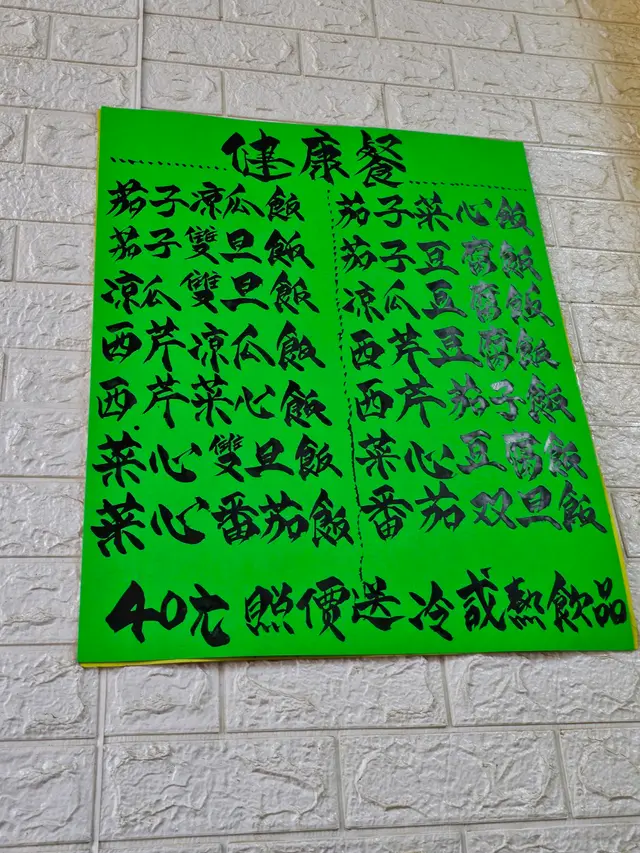 健康餐
茄子凉瓜飯
茄子雙旦飯
凉瓜雙旦飯
西芹凉瓜飯
西芹菜心飯
菜心雙旦飯
菜心番茄飯
茄子菜心飯
茄子豆腐飯
凉瓜豆腐飯
西芹豆腐飯
西芹茄子飯
菜心豆腐飯
番茄双旦飯
40元 照價送冷或熱飲品